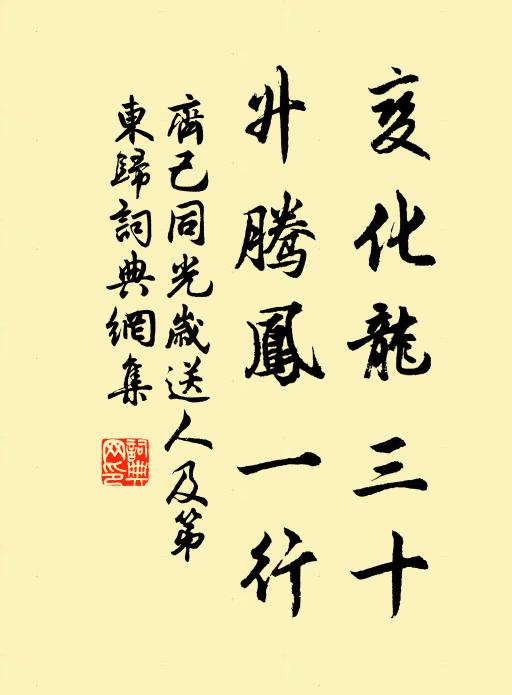 变化龍三十
升騰鳳一行
齊己同光歲送人及第
東歸詞典網集
詞典网印